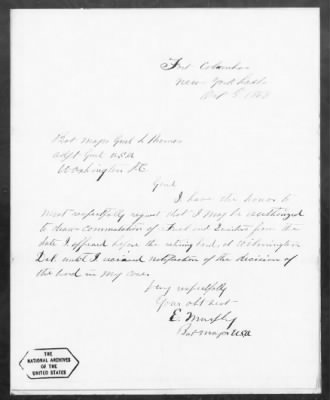 Fort Columbus
New York Harbor
Oct 5, 1868
Bvt Major Genl L Thomas
Adjt Genl U.S.A
Washington D.C.
Genl
I have the honor to
most respectfully request that I may be authorized
to draw commutation of Fuel and Quarters from the
date I appeared before the retiring board at Wilmington
Del until I received notification of the decision of
the board in my case.
Very respectfully
Your obt servt
E. Murphy
Bvt Major USA
THE
NATIONAL ARCHIVES
OF THE
UNITED STATES